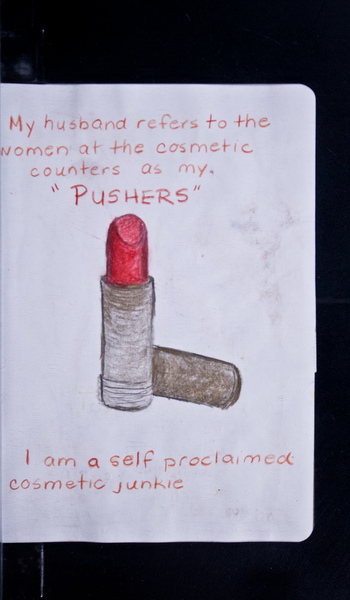 My husband refers to the
women at the cosmetic
counters as my.
"PUSHERS"
I am a self proclaimed
cosmetic junkie